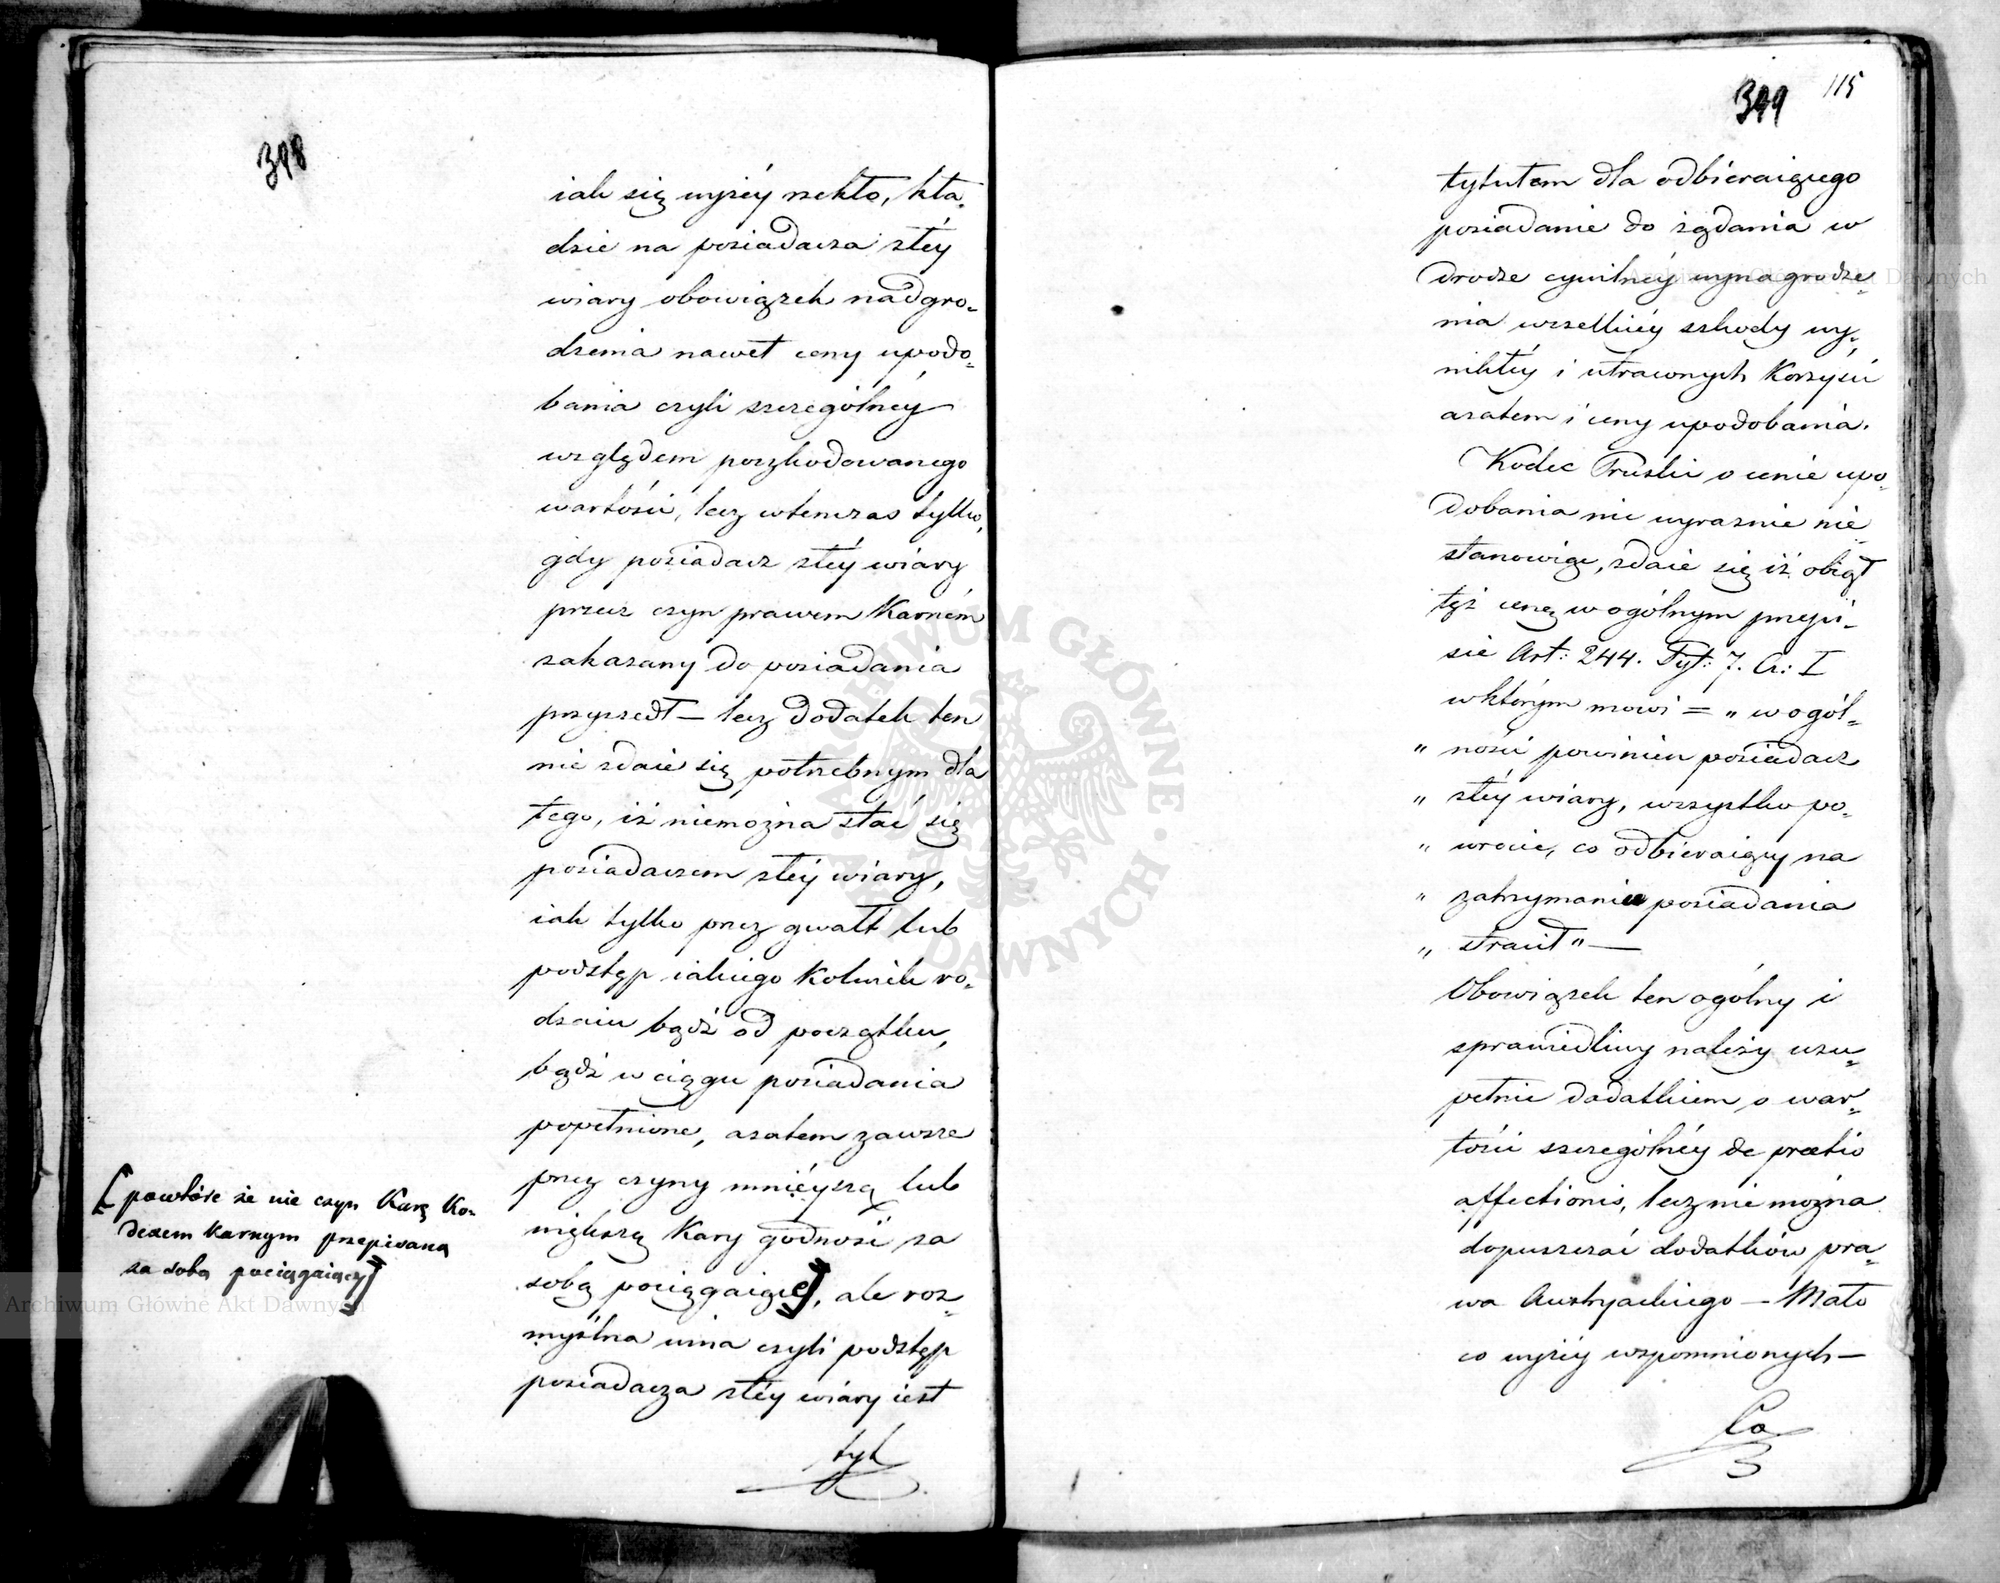 398
iak się wyżéy rzekło, kła-
dzie na posiadacza złéy
wiary obowiązek nadgro-
dzenia nawet ceny upodo-
bania czyli szczególnéy
względem poszkodowanego
wartości, lecz wtenczas tylko,
gdy posiadacz złéy wiary
przez czyn prawem Karném
zakazany do posiadania
przyszedł — lecz dodatek ten
nie zdaie się potrzebnym dla
tego, iż niemożna stać się
posiadaczem złéy wiary,
iak tylko przez gwałt lub
podstęp iakiego kolwiek ro-
dzaiu bądź od początku,
bądź w ciągu posiadania
popełnione, a zatem zawsze
przez czyny mnieyszą lub
większą Kary godność za
sobą pociągaiące], ale roz-
myślna wina czyli podstęp
posiadacza złéy wiary iest
tyt
[powtóre że nie czyn Karę Ko-
dexem karnym przepisaną
za sobą pociągaiący]
399 115
tytułem dla odbieraiącego
posiadanie do żądania w
drodze cywilnéy wynagrodze-
nia wszelkiéy szkody wy-
nikłéy i utraconych Korzyści
a zatem i ceny upodobania.
Kodex Pruski o cenie upo-
dobania nic wyraznie nie
stanowiąc, zdaie się iż obiął
tęż cenę w ogólnym przepi-
sie Art: 244. Tyt: 7. Cz: I
w którym mowi = „ w ogól-
„ ności powinien posiadacz
„ złéy wiary, wszystko po-
„ wrócić, co odbieraiący na
„ zatrzymaniu posiadania
„ stracił " —
Obowiązek ten ogólny i
sprawiedliwy należy uzu-
pełnić dodatkiem o war-
tości szczególnéy de pretio
affectionis, lecz nie można
dopuszczać dodatków pra-
wa Austryackiego — Mało
co wyżéy wspomnionych —
Co
Archiwum Główne Akt Dawnych
Archiwum Główne Akt Dawnych
ARCHIWUM GŁÓWNE AKT DAWNYCH